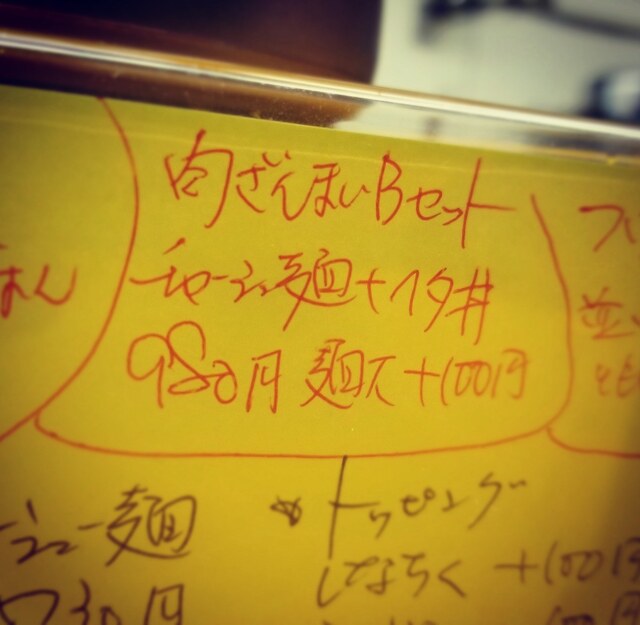 肉ざんまいBセット
チャーシュー麺+イタ丼
980円 麺大+100円
まん
ュー麺
730円
トッピング
しなちく +100円
100円